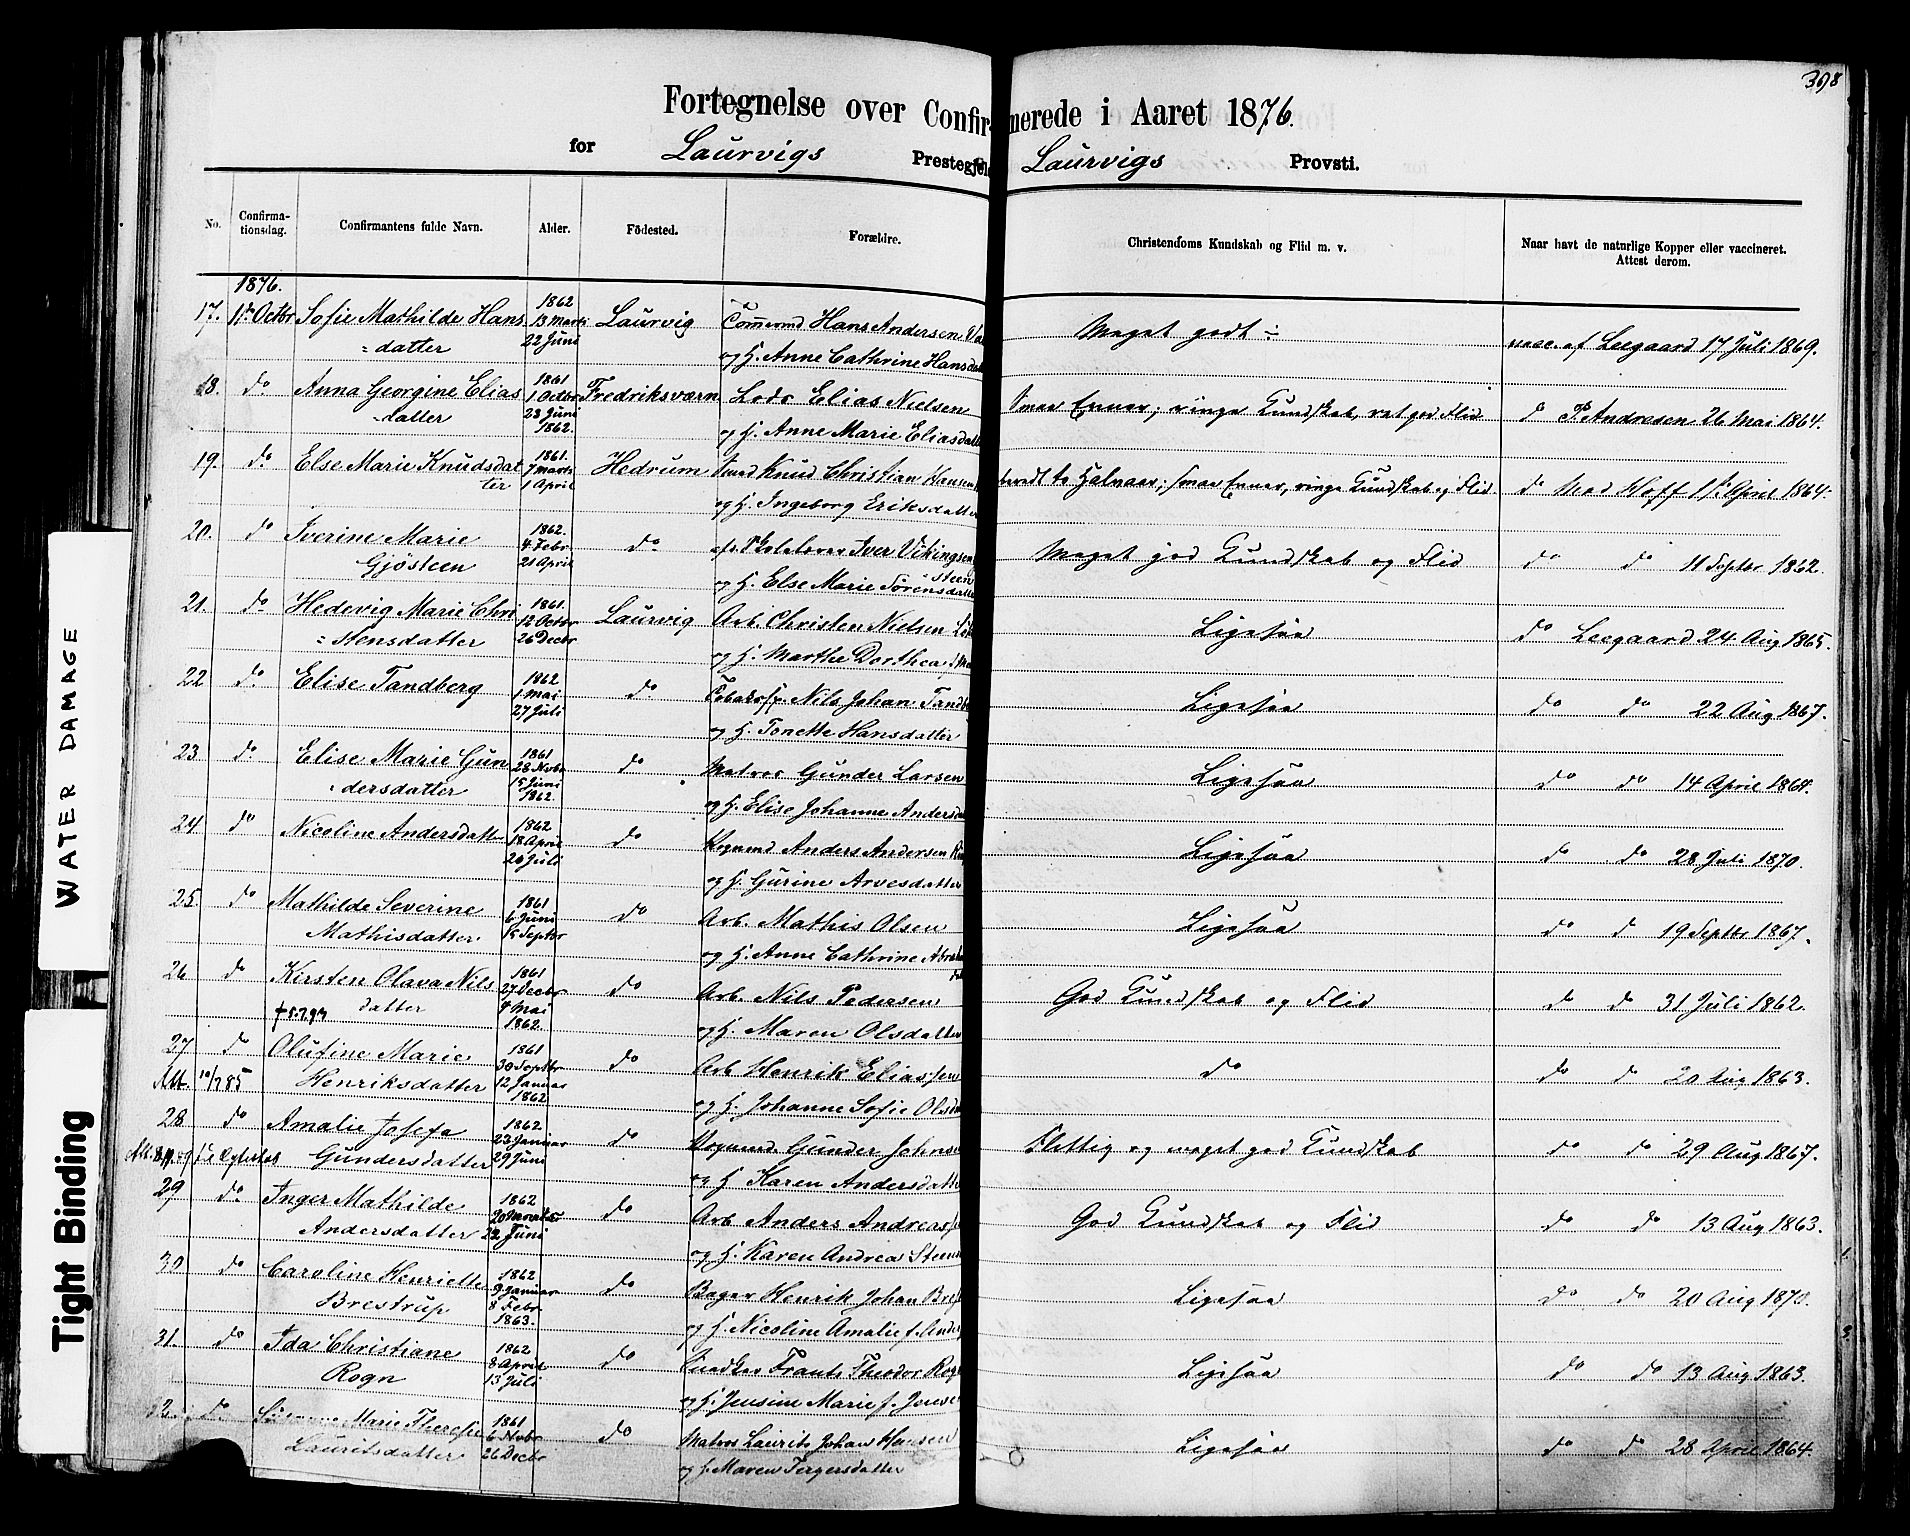 398
Fortegnelse over Confirmerede i Aaret 1876.
for Laurvigs Prestegjeld Laurvigs Provsti.
No. Confirmationsdag. Confirmantens fulde Navn. Alder. Födested. Forældre. Christendoms Kundskab og Flid m. v. Naar havt de naturlige Kopper eller vaccineret. Attest derom.
1876.
17. 1ste Octbr Sofie Mathilde Hans 1862 13 Marts Laurvig Hans Andersen Meget godt ÷ vacc. af Leegaard 17 Juli 1869.
=datter 22 Juni og H. Anne Cathrine Hansdatt
18. do Anna Georgine Elias 1861 1 Octbr Fredriksværn Lods Elias Nielsen Smaa Evner, ringe Kundskab, ret god Flid do P. Andresen 26 Mai 1864.
datter 23 Juni 1862. og H. Anne Marie Eliasdatt
19. do Else Marie Knudsdat 1861. 7 Marts Hedrum Knud Christian Hansen Smaa Evner, ringe Kundskab og Flid do Mad Hoff 1ste April 1864.
ter 1 April og H. Ingeborg Eriksdatter
20. do Iverine Marie 1862. 4 Febr do Skolelærer Iver Vikingsen Meget god Kundskab og Flid do do 11 Septbr 1862.
Gjösteen 21 April steen
og H. Else Marie Sörensdatter
21. do Hedevig Marie Chri 1861. 12 Octbr Laurvig Arb. Christen Nielsen Ligesaa do Leegaard 24 Aug 1865.
=stensdatter 26 Decbr og H. Marthe Dorthea
22 do Elise Tandberg 1862 1 Mai do Nils Johan Tandb Ligesaa do do 22 Aug 1867.
27 Juli og H. Tonette Hansdatter
23 do Elise Marie Gun 1861 28 Novbr do Matros Gunder Larsen Ligesaa do do 14 April 1864.
dersdatter 15 Juni 1862. og H. Elise Johanne Andersda
24 do Nicoline Andersdatter 1862 18 April do Vognmd Anders Andersen Ligesaa do do 28 Juli 1870.
20 Juli og H. Gurine Arvesdatter
25. do Mathilde Severine 1861 6 Juni do Arb. Mathis Olsen Ligesaa do do 19 Septbr 1867.
Mathisdatter 15 Septbr og H. Anne Cathrine
26 do Kirsten Olava Nils 1861 27 Decbr do Arb. Nils Pedersen God Kundskab og Flid do do 31 Juli 1862.
datter 4 Mai 1862. og H. Maren Olsdatter
27 do Olufine Marie 1861 30 Septbr do Arb Henrik Eliassen do do do 20 Aug 1863.
Att. 10/7 85 Henriksdatter 12 Januar 1862 og H. Johanne Sofie Olsda
28 do Amalie Josefa 1862. 23 Januar do Vognmd Gunder Johnsen Flittig og meget god Kundskab do do 29 Aug 1867.
Gundersdatter 29 Juni og H Karen Andersdatt
29 do Inger Mathilde 1862 20 do Arb Anders Andreas God Kundskab og Flid do do 13 Aug 1863.
Andersdatter 22 Juni og H. Karen Andrea
30 do Caroline Henriette 1862 9 Januar do Bager Henrik Johan Ligesaa do do 20 Aug 1870.
Brestrup 8 Febr 1863. og H. Nicoline Amalie f.
31. do Ida Christiane 1862 8 April do Snedker Frants Theodor Rogn Ligesaa do do 13 Aug 1863.
Rogn 13 Juli og H. Jensine Marie f. Jense
32. do Marie Therese 1861 6 Novbr do Matros Laurits Johan Hansen Ligesaa do do 28 April 1864.
Lauritsdatter 26 Decbr og H. Maren Tergersdatter
WATER DAMAGE
Tight Binding